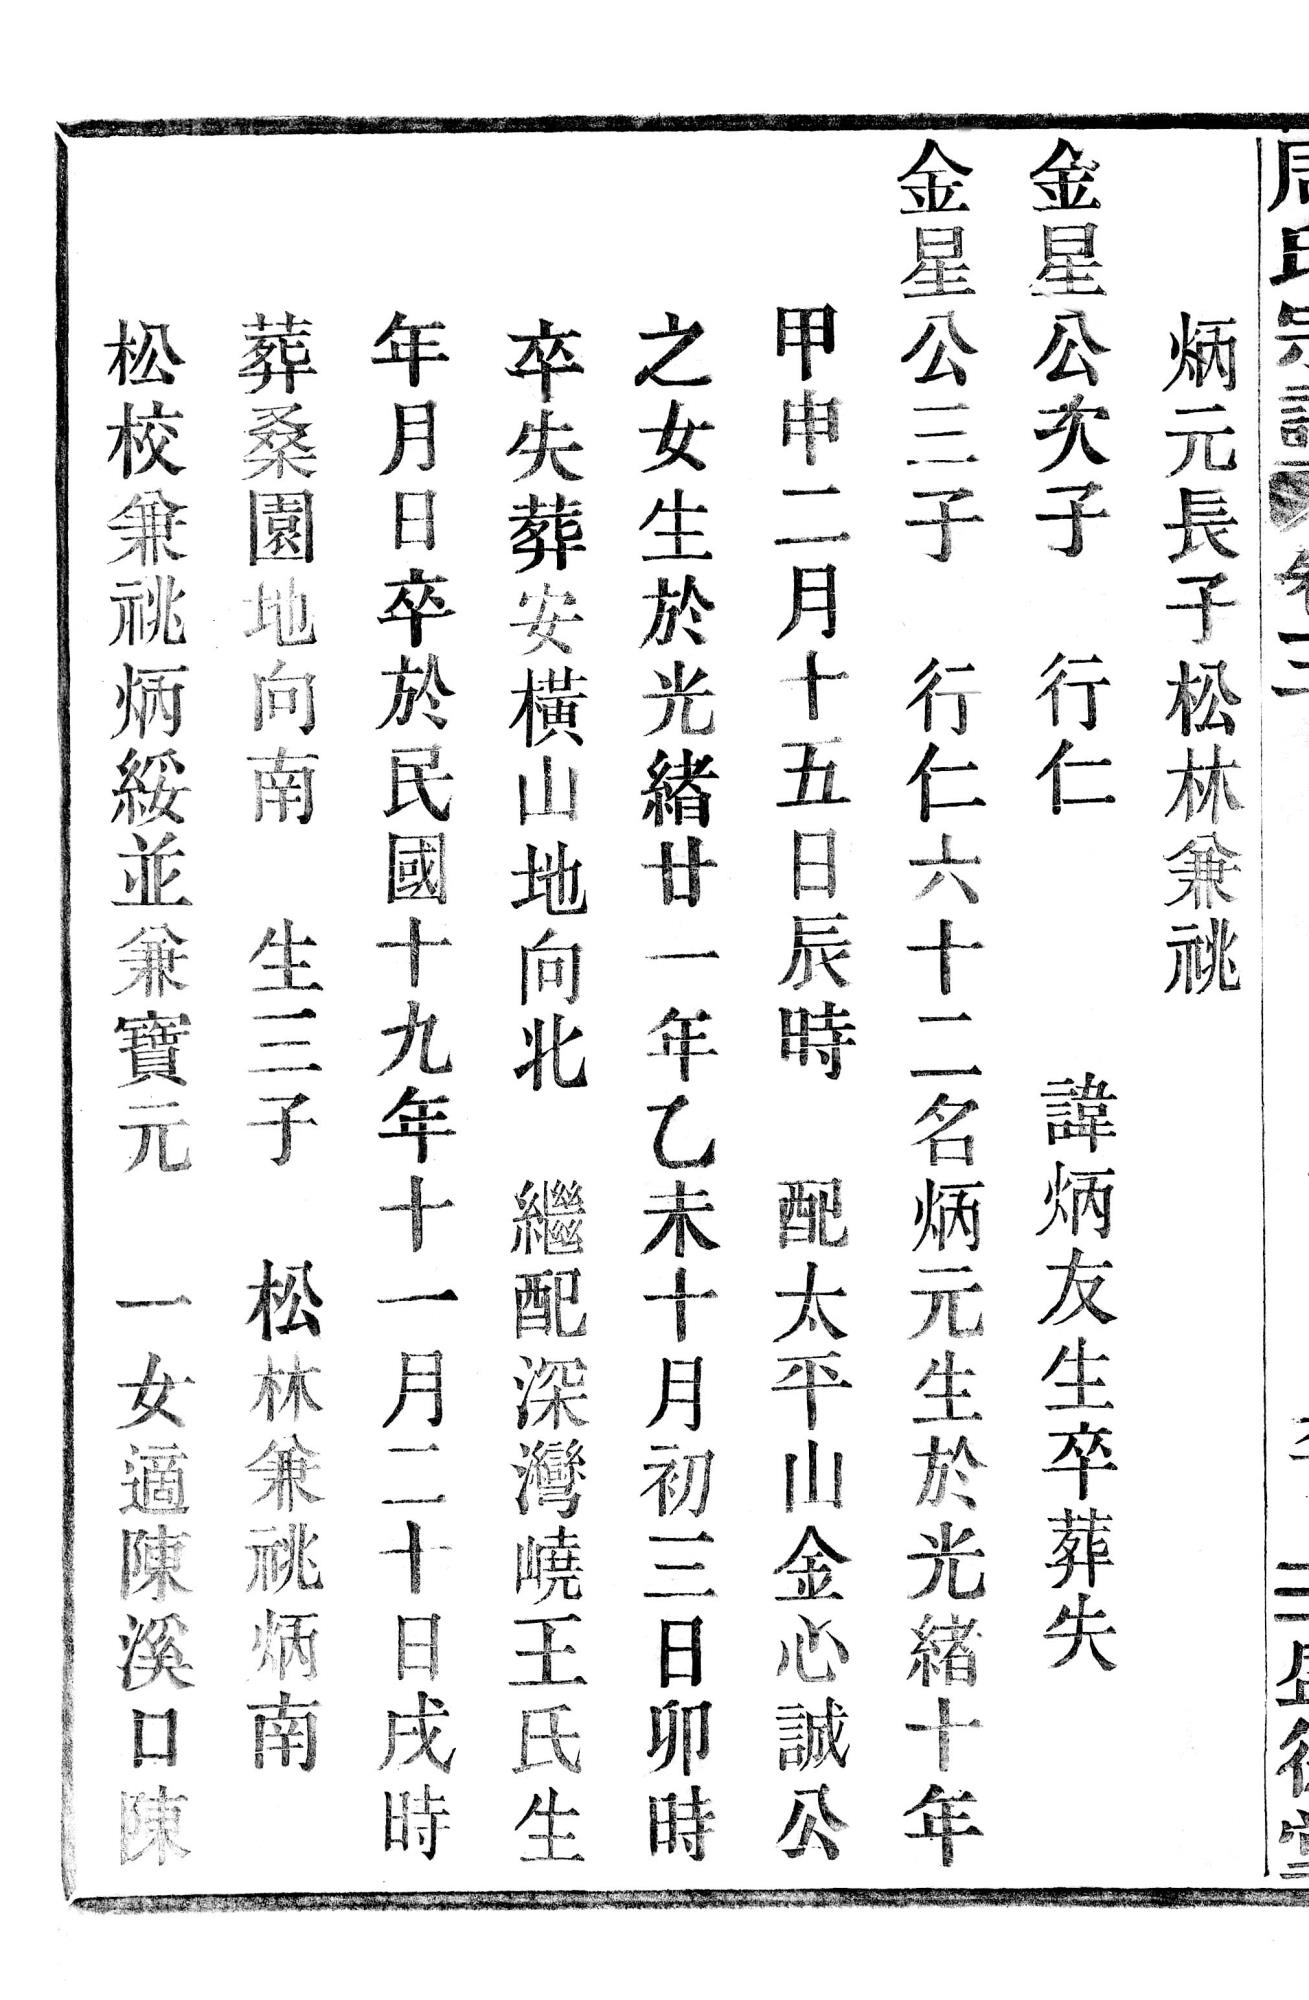 周氏宗譜 卷二 三 盛德堂
炳元長子松林兼祧
金星公次子 行仁 諱炳友生卒葬失
金星公三子 行仁六十二名炳元生於光緒十年
甲申二月十五日辰時 配太平山金心誠公
之女生於光緒廿一年乙未十月初三日卯時
卒失葬安橫山地向北 繼配深灣嶢王氏生
年月日卒於民國十九年十一月二十日戌時
葬桑園地向南 生三子 松林兼祧炳南
松校兼祧炳綏並兼寶元 一女適陳溪口陳